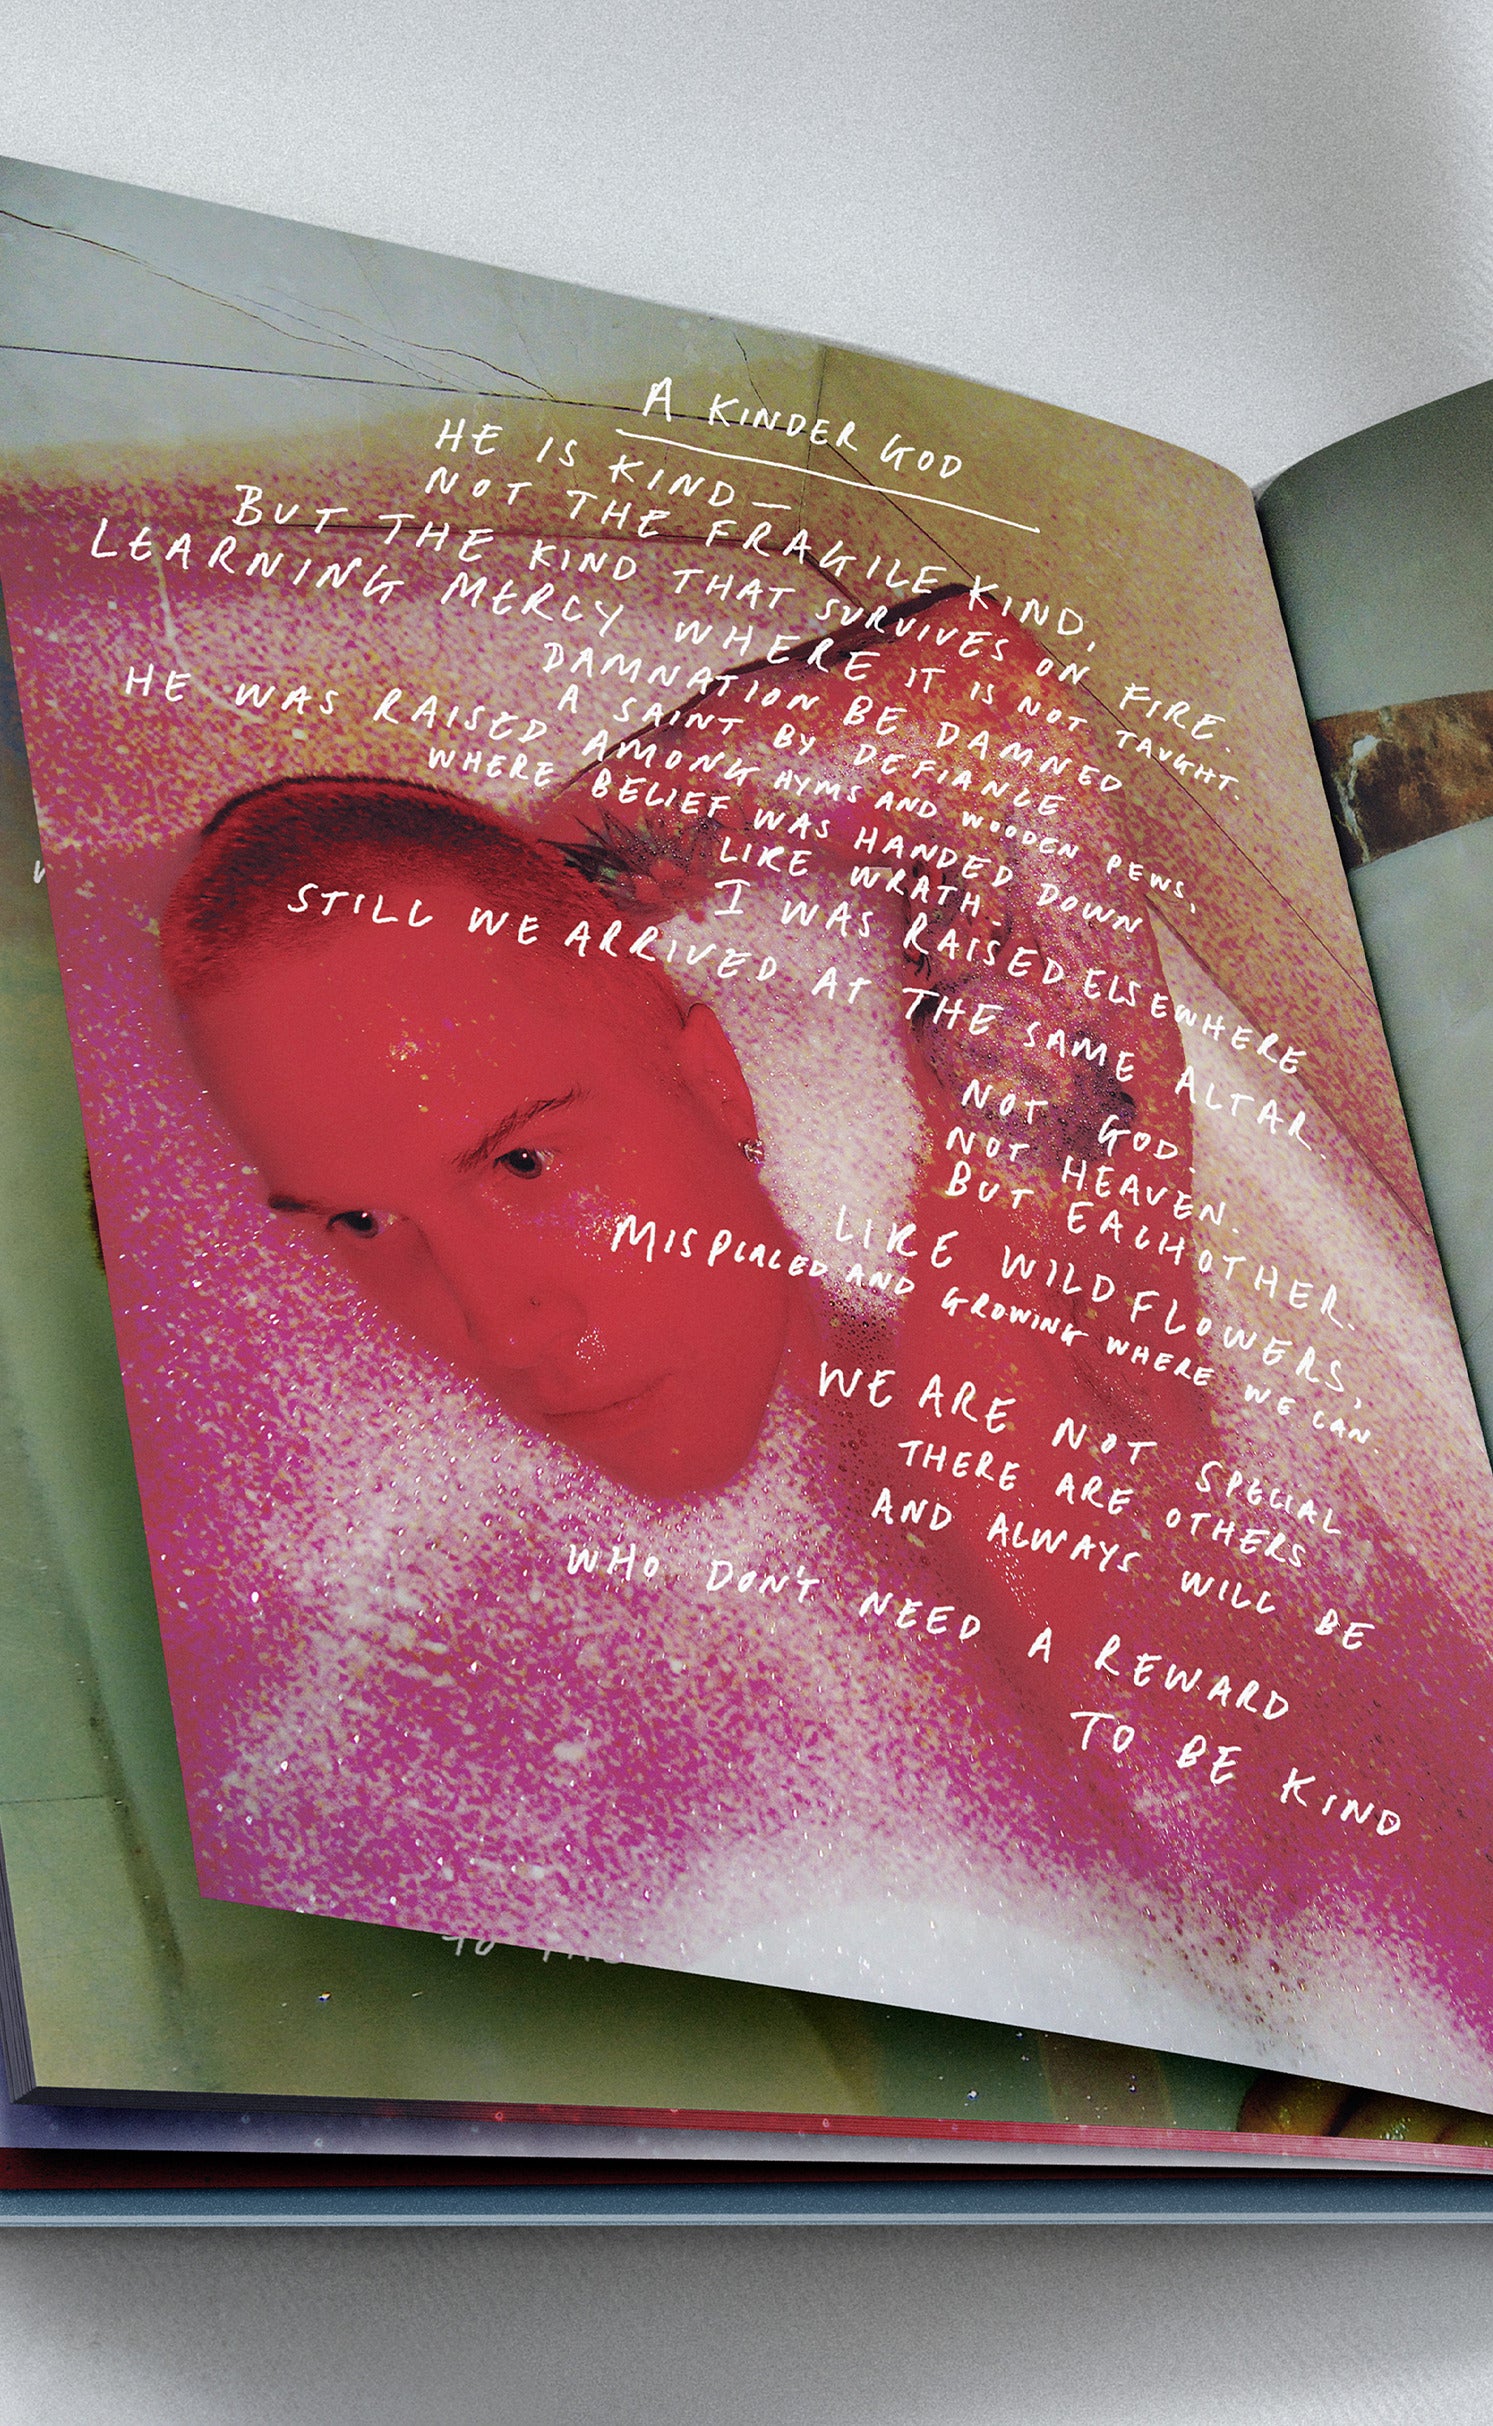 A KINDER GOD
HE IS KIND—
NOT THE FRAGILE KIND,
BUT THE KIND THAT SURVIVES ON FIRE.
LEARNING MERCY WHERE IT IS NOT TAUGHT.
DAMNATION BE DAMNED
A SAINT BY DEFIANCE
HE WAS RAISED AMONG HYMS AND WOODEN PEWS,
WHERE BELIEF WAS HANDED DOWN
LIKE WRATH.
I WAS RAISED ELSEWHERE
STILL WE ARRIVED AT THE SAME ALTAR.
NOT GOD.
NOT HEAVEN.
BUT EACHOTHER.
LIKE WILDFLOWERS,
MISPLACED AND GROWING WHERE WE CAN.
WE ARE NOT SPECIAL
THERE ARE OTHERS
AND ALWAYS WILL BE
WHO DON'T NEED A REWARD
TO BE KIND
TO